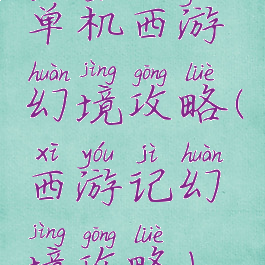 单机西游
huàn jìng gōng lüè
幻境攻略(
xī yóu jì huàn
西游记幻
jìng gōng lüè
境攻略)